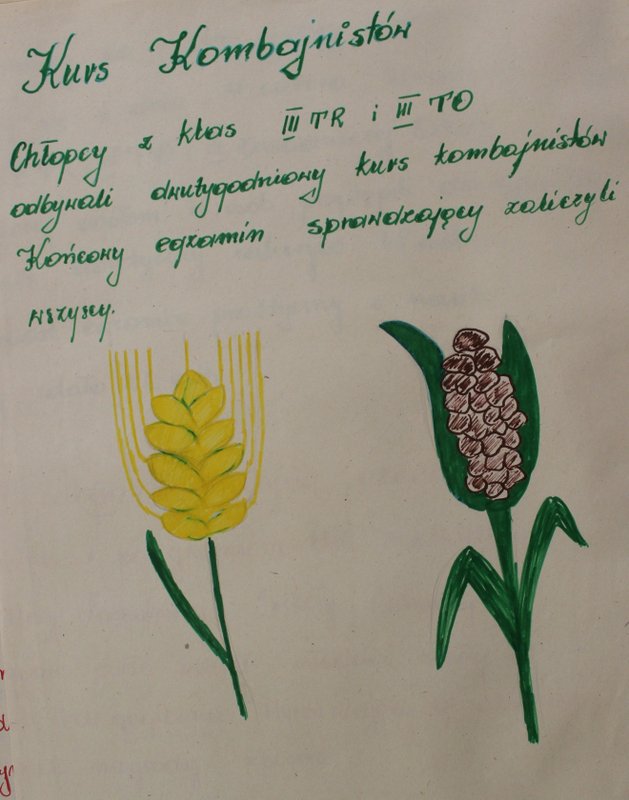 Kurs Kombajnistów
Chłopcy z klas III TR i III TO
odbywali dwutygodniowy kurs kombajnistów
Końcowy egzamin sprawdzający zaliczyli
wszyscy.